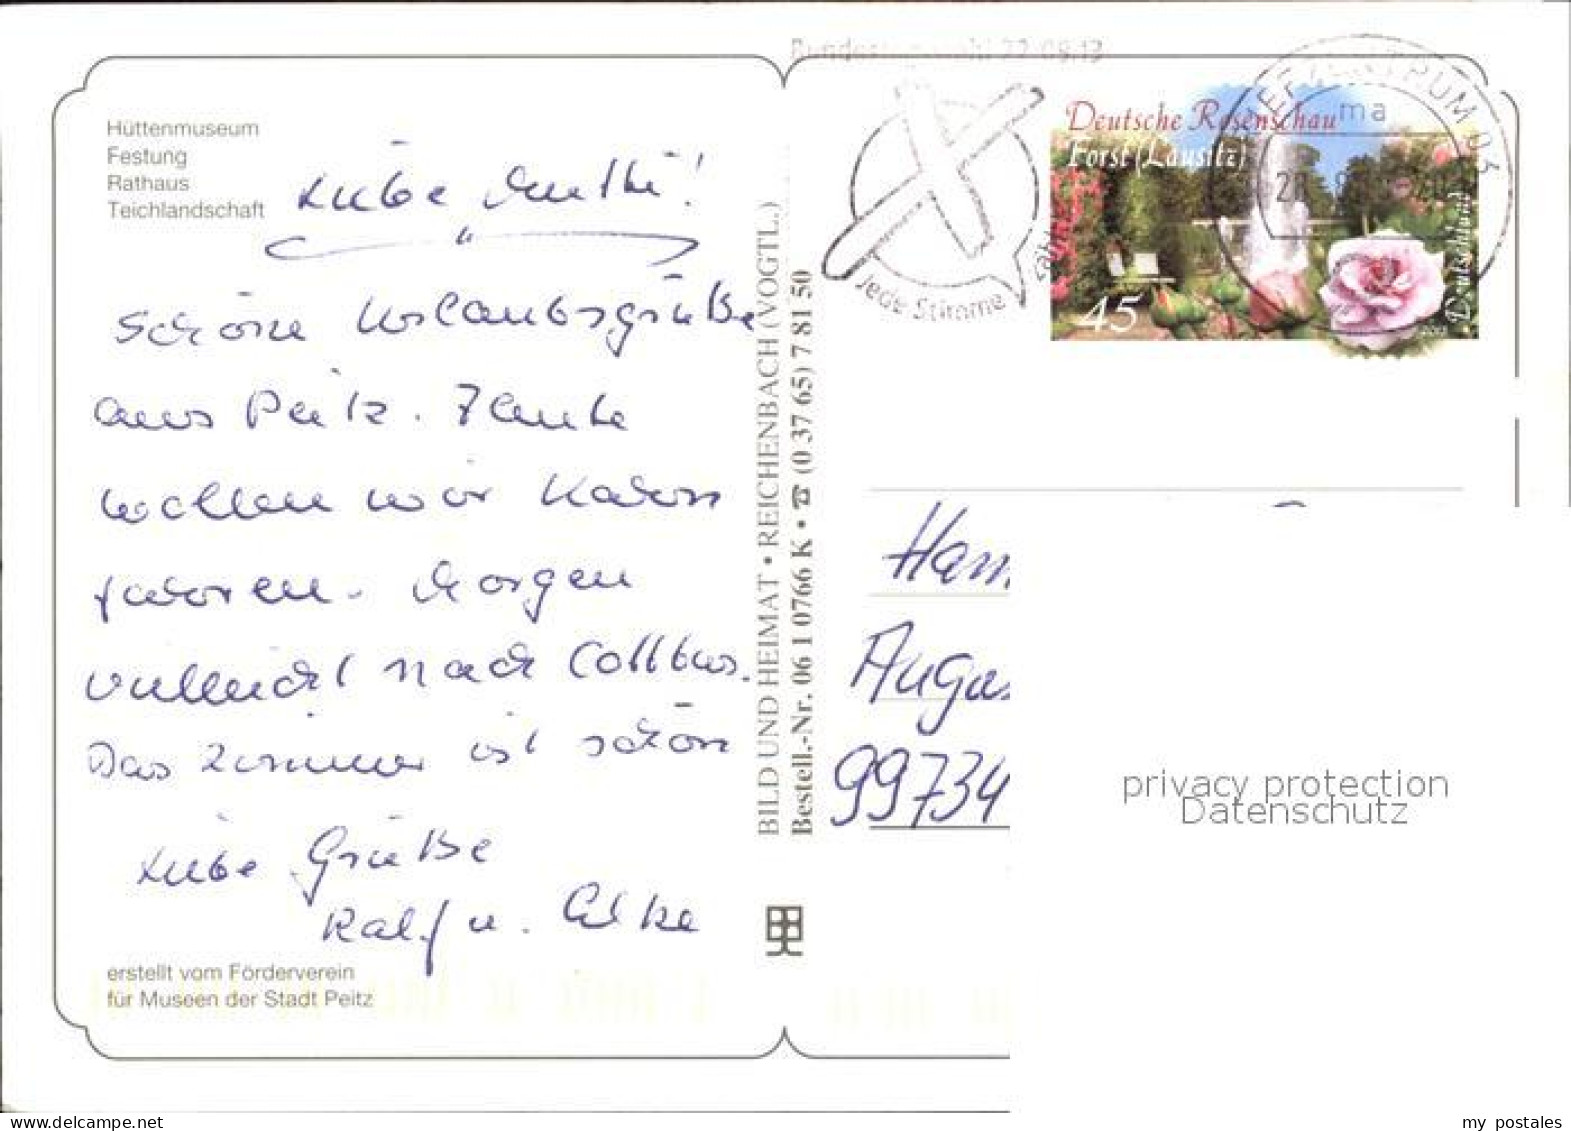 Bundestagswahl 22.09.13
Hüttenmuseum
Festung
Rathaus
Teichlandschaft
Liebe Mutti!
Schöne Urlaubsgrüße
aus Peitz. Heute
wollen wir Kahn
fahren. Morgen
vielleicht nach Cottbus.
Das Zimmer ist schön
Liebe Grüße
Ralf u. Elke
erstellt vom Förderverein
für Museen der Stadt Peitz
BILD UND HEIMAT • REICHENBACH (VOGTL.)
Bestell.-Nr. 06 1 0766 K • ☎ (0 37 65) 7 81 50
Jede Stimme
BRIEFZENTRUM 03
ma
Deutsche Rosenschau
Forst (Lausitz)
45
Deutschland
Ham
Augus
99734
privacy protection
Datenschutz
www.delcampe.net
my_postales